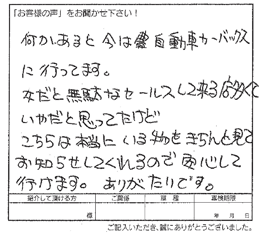 「お客様の声」をお聞かせ下さい!
何かあると今は 自動車カーボックス
に行ってます。
夫だと無駄なセールスして来る店多くて
いやだと思ってたけど
こちらは本当にいる物をきちんと見て
お知らせしてくれるので安心して
行けます。ありがたいです。
紹介して頂ける方 ご関係 車種 車検期限
様 年 月 日
ご記入いただき、誠にありがとうございました。